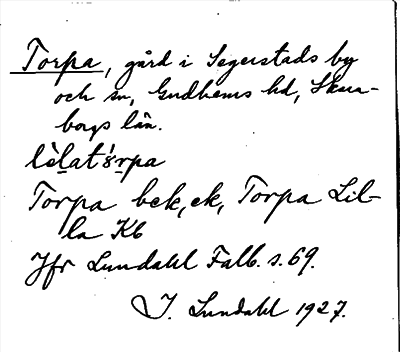 Torpa, gård i Segerstads by
och sn, Gudhems hd, Skara-
borgs län.
lìlat'órpa
Torpa bek, ek, Torpa Lil-
la Kb
Jfr Lundahl Falb. s. 69.
I. Lundahl 1927.